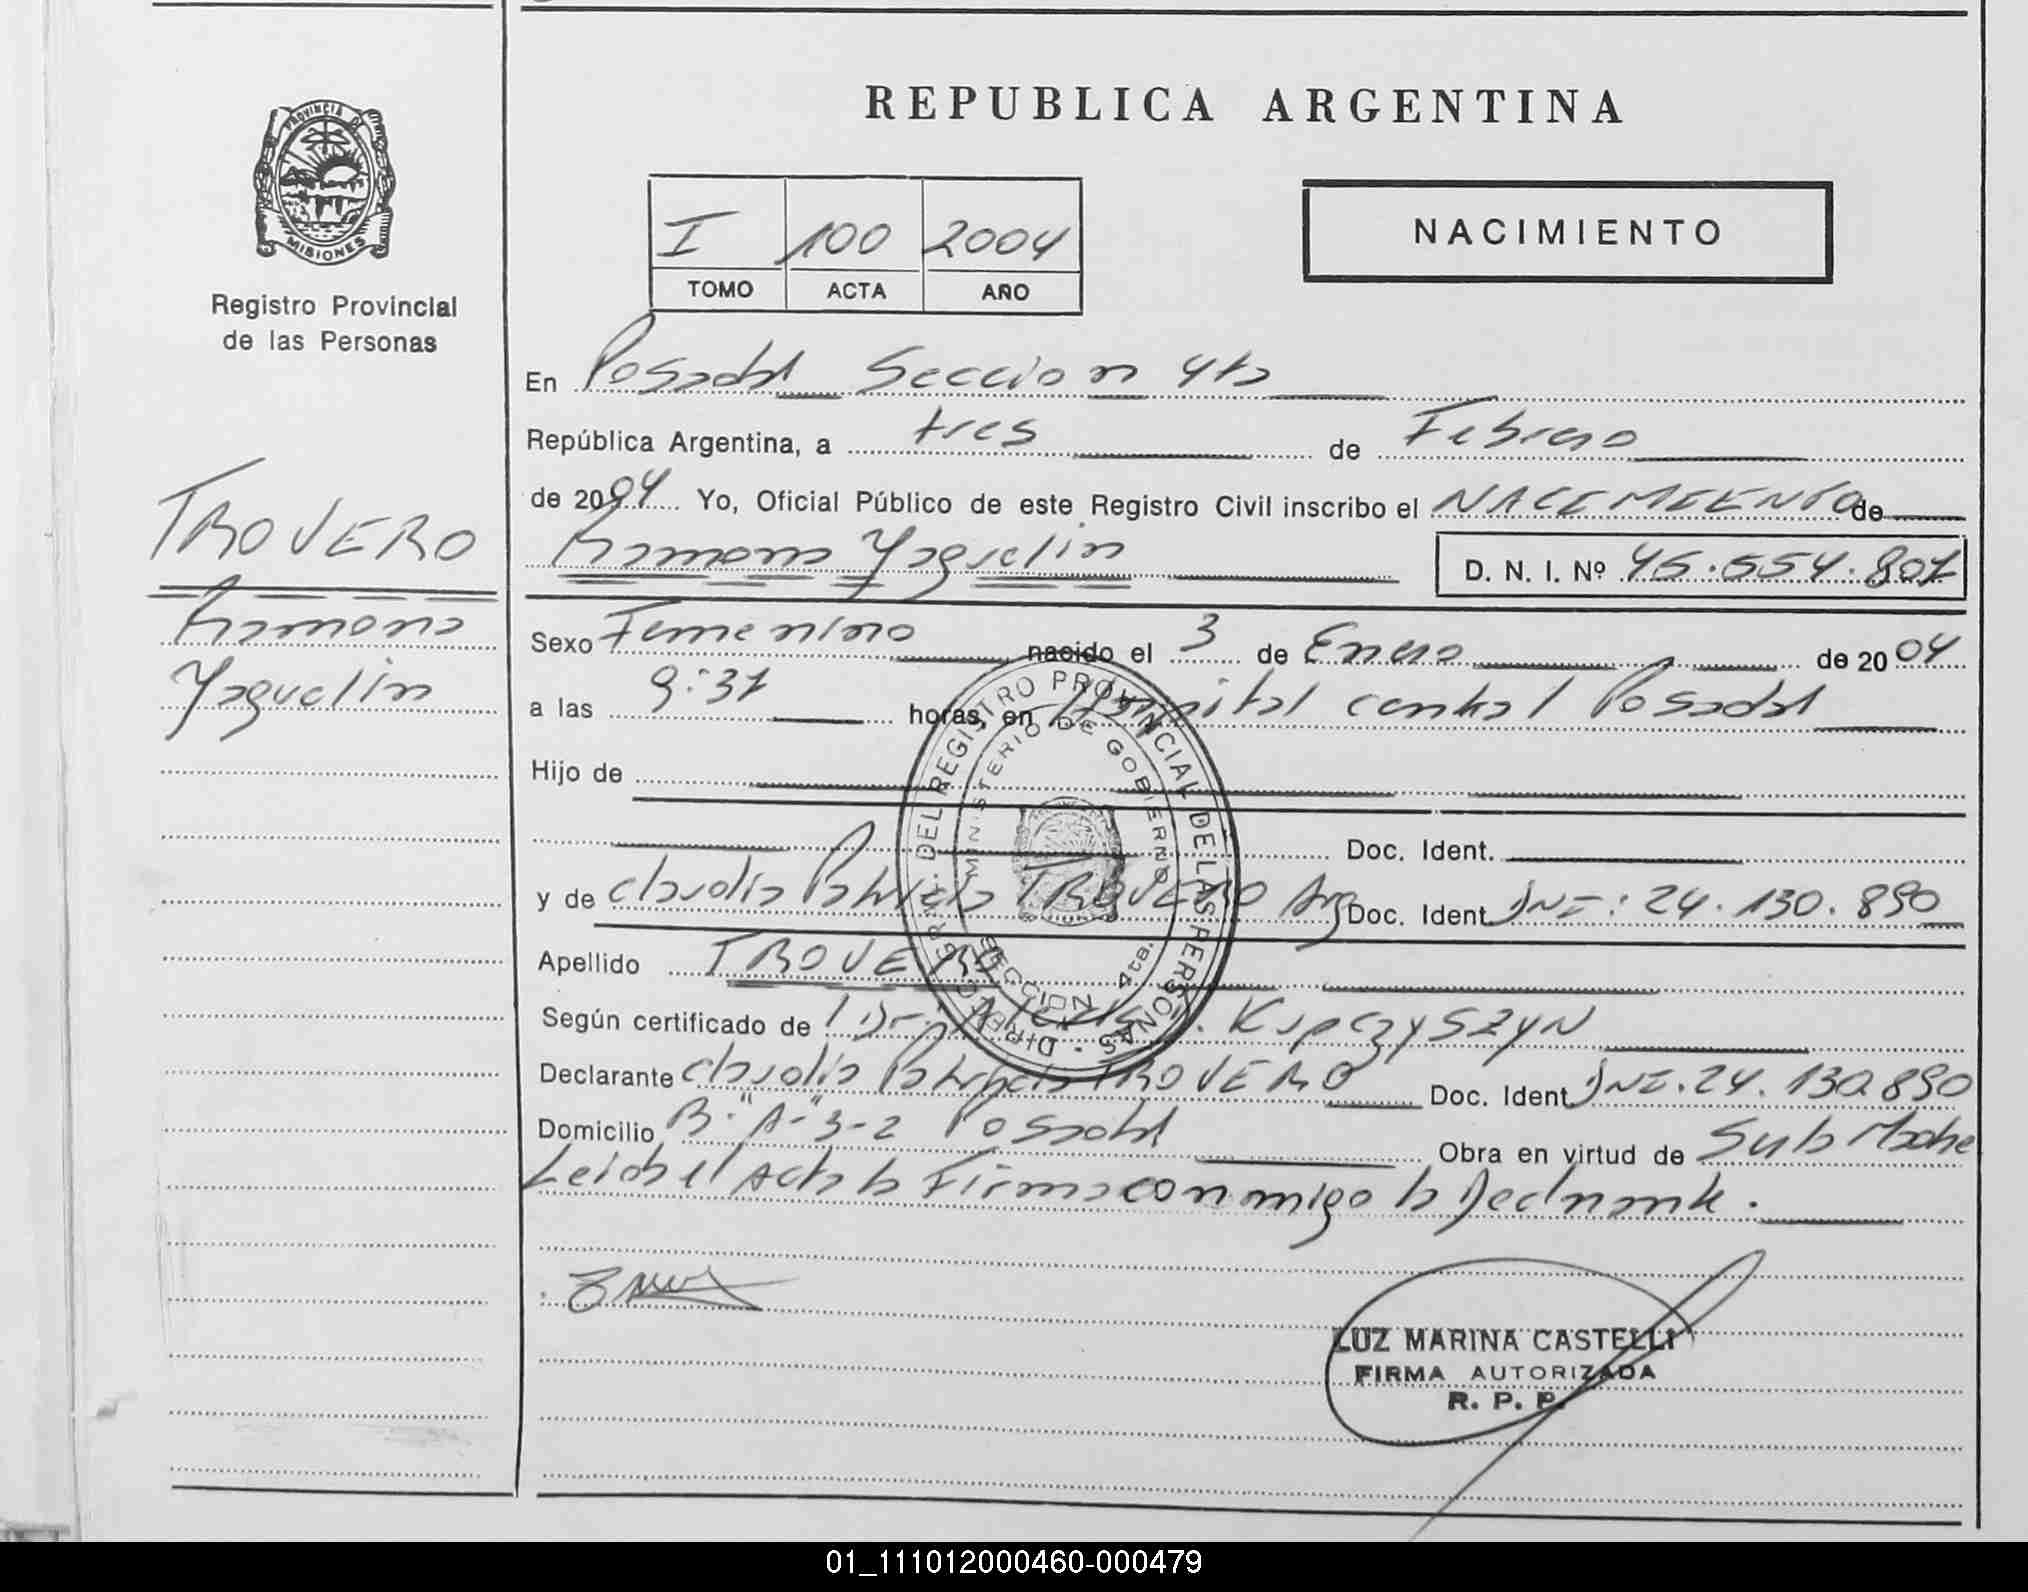 PROVINCIA DE
MISIONES
Registro Provincial
de las Personas
TROVERO
Ramona
Yaquelin
REPUBLICA ARGENTINA
I 100 2004
TOMO ACTA AÑO
NACIMIENTO
En Posadas Seccion 4ta
República Argentina, a tres de Febrero
de 2004 Yo, Oficial Público de este Registro Civil inscribo el NACIMIENTO de
Ramona Yaquelin D. N. I. Nº 45.554.801
Sexo Femenino nacido el 3 de Enero de 2004
a las 9:31 horas, en Hospital central Posadas
Hijo de
Doc. Ident.
y de Claudia Patricia TROVERO Arg Doc. Ident. DNI: 24.130.890
Apellido TROVERO
Según certificado de Dr. Kupczyszyn
Declarante Claudia Patricia TROVERO Doc. Ident. DNI. 24.130.890
Domicilio B. "A-" 3-2 Posadas Obra en virtud de Su Madre
Leida el Acta la Firma conmigo la Declarante.
DIREC. GRAL. DEL REGISTRO PROVINCIAL DE LAS PERSONAS
MINISTERIO DE GOBIERNO
SECCION 4ta.
LUZ MARINA CASTELLI
FIRMA AUTORIZADA
R. P. P.
01_111012000460-000479